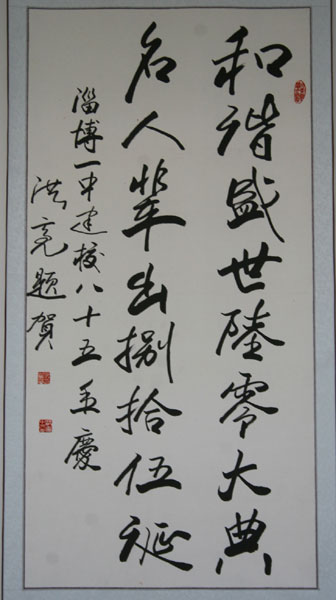 和谐盛世陆零大典
名人辈出捌拾伍诞
淄博一中建校八十五年慶
洪亮题贺